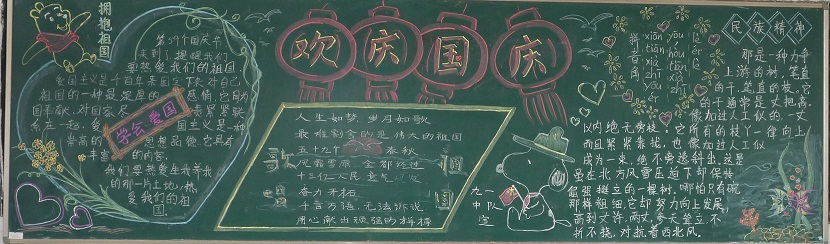 拥抱祖国
第59个国庆节
来到了提醒我们
要热爱我们的祖国
爱国主义是千百年来固定下来对自己
祖国的一种最深厚的感情,它自为
国奉献,对国家尽
系在一起,爱国主义是一种
崇高的思想品德,它具有
丰富的内容.
我们要热爱生我养我
的那一片土地,热
爱我们的祖
国.
学会爱国
欢庆国庆
人生如梦 岁月如歌
最难割舍的是伟大的祖国
五十九个春秋
风霜雪雨 全部经过
十三亿人民 意气风发
奋力开拓
千言万语,无法诉说
用心献出顽强的拼搏
九一
中队
宣
拼音角
民族精神
那是一种力争
上游的树,笔直
的干,笔直的枝。它
的干通常是丈把高,
像加过人工似的,一丈
以内绝无旁枝。它所有的枝丫一律向上,
而且紧紧靠拢,也像加过人工似
成为一束,绝不旁逸斜出。这是
虽在北方风雪压迫下却保持
倔强挺立的一棵树,哪怕只有碗
那样粗细,它却努力向上发展,
高到丈许,两丈,参天耸立,不
折不挠,对抗着西北风。